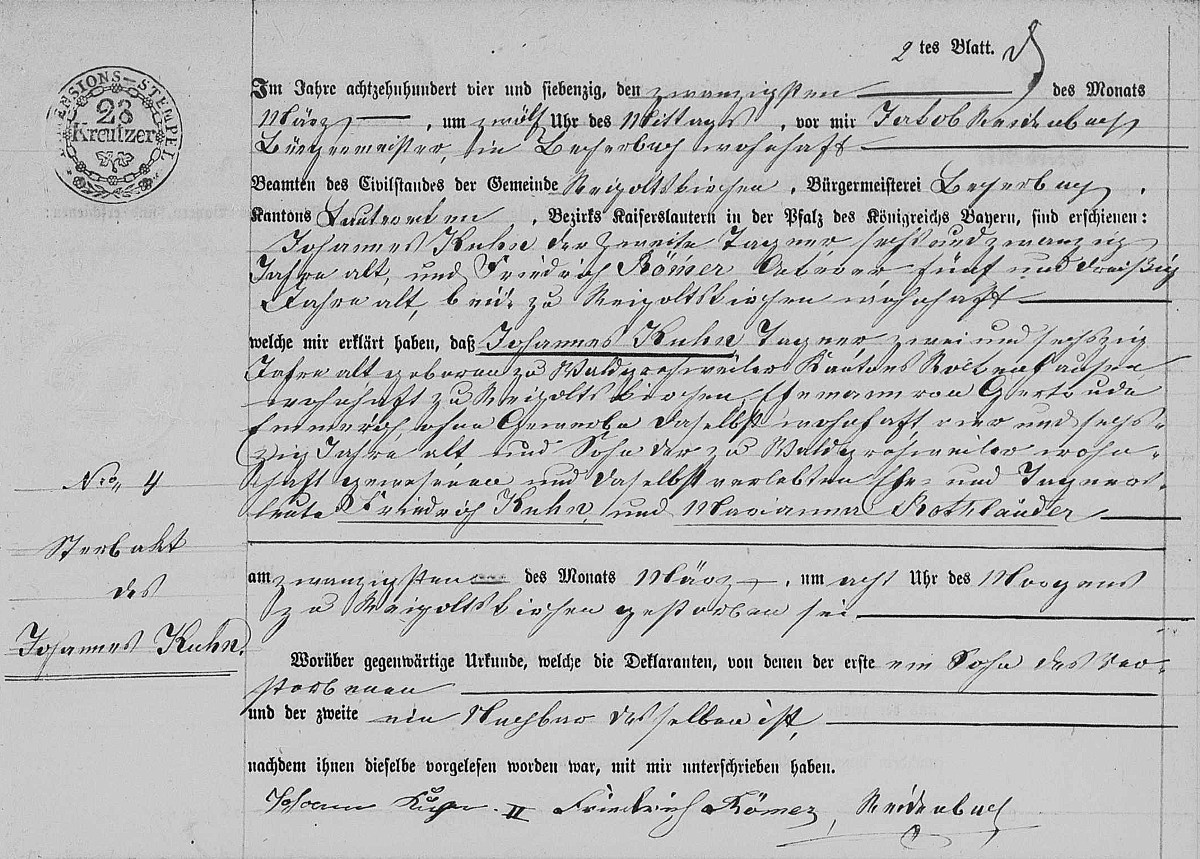 2 tes Blatt.
DIMENSIONS-STEMPEL
28
Kreutzer
Im Jahre achtzehnhundert vier und siebenzig, den zwanzigsten des Monats
März, um zwölf Uhr des Mittags, vor mir Jakob Reidenbach
Bürgermeister, in Becherbach wohnhaft
Beamten des Civilstandes der Gemeinde Reipoltskirchen, Bürgermeisterei Becherbach,
Kantons Lauterecken, Bezirks Kaiserslautern in der Pfalz des Königreichs Bayern, sind erschienen:
Johannes Kuhn der Zweite Tagner sechsundzwanzig
Jahre alt, und Friedrich Römer Ackerer fünf und dreißig
Jahre alt, beide zu Reipoltskirchen wohnhaft
welche mir erklärt haben, daß Johannes Kuhn Tagner zwei und sechszig
Jahre alt geboren zu Waldgrehweiler Kantons Rockenhausen
wohnhaft zu Reipoltskirchen, Ehemann von Gertrude
Emmerich, ohne Gewerbe daselbst wohnhaft vier und sechs-
zig Jahre alt und Sohn der zu Waldgrehweiler wohn-
haft gewesenen und daselbst verlebten Ehe- und Tagners-
leute Friedrich Kuhn, und Marianna Rothländer
am zwanzigsten des Monats März, um acht Uhr des Morgens
zu Reipoltskirchen gestorben sei
Worüber gegenwärtige Urkunde, welche die Deklaranten, von denen der erste ein Sohn des Ver-
storbenen
und der zweite ein Nachbar desselben ist,
nachdem ihnen dieselbe vorgelesen worden war, mit mir unterschrieben haben.
Johann Kuhn II Friedrich Römer, Reidenbach
Nro. 4
Sterbakt
des
Johannes Kuhn.